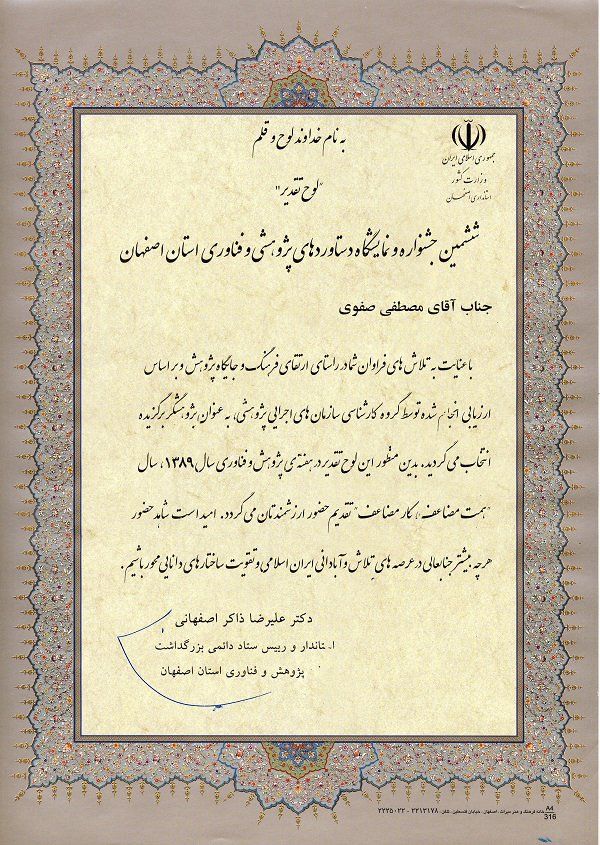 به نام خداوند لوح و قلم
جمهوری اسلامی ایران
وزارت کشور
استانداری اصفهان
"لوح تقدیر"
ششمین جشنواره و نمایشگاه دستاوردهای پژوهشی و فناوری استان اصفهان
جناب آقای مصطفی صفوی
با عنایت به تلاش های فراوان شما در راستای ارتقای فرهنگ و جایگاه پژوهش و بر اساس
ارزیابی انجام شده توسط گروه کارشناسی سازمان های اجرایی پژوهشی، به عنوان پژوهشگر برگزیده
انتخاب می گردید. بدین منظور این لوح تقدیر در هفته ی پژوهش و فناوری سال ۱۳۸۹، سال
"همت مضاعف، کار مضاعف" تقدیم حضور ارزشمندتان می گردد. امید است شاهد حضور
هرچه بیشتر جنابعالی در عرصه های تلاش و آبادانی ایران اسلامی و تقویت ساختارهای دانایی محور باشیم.
دکتر علیرضا ذاکر اصفهانی
استاندار و رییس ستاد دائمی بزرگداشت
پژوهش و فناوری استان اصفهان
خانه فرهنگ و هنر میراث، اصفهان، خیابان فلسطین، تلفن: ۲۲۱۳۱۷۸ - ۲۲۲۵۰۲۲
A4
316